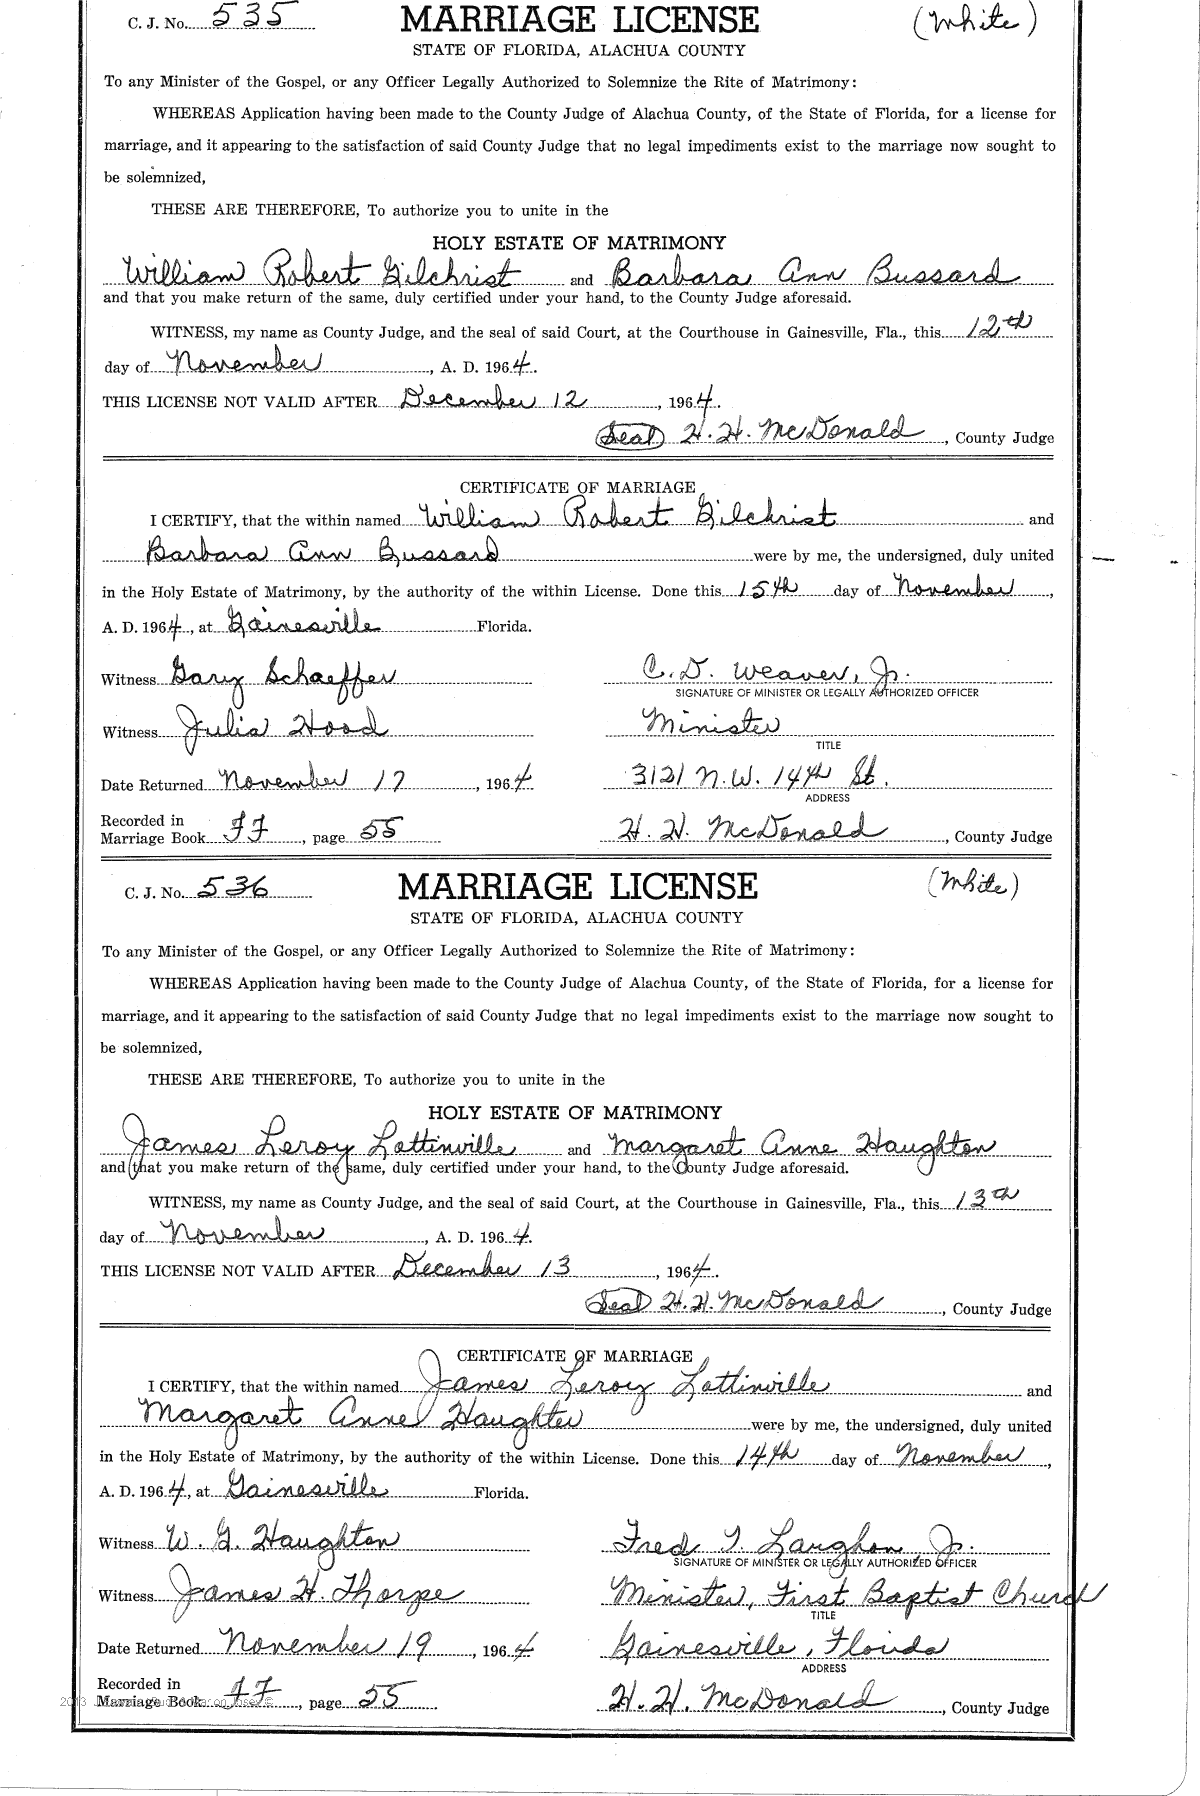 C. J. No. 535 MARRIAGE LICENSE (White)
STATE OF FLORIDA, ALACHUA COUNTY
To any Minister of the Gospel, or any Officer Legally Authorized to Solemnize the Rite of Matrimony:
WHEREAS Application having been made to the County Judge of Alachua County, of the State of Florida, for a license for
marriage, and it appearing to the satisfaction of said County Judge that no legal impediments exist to the marriage now sought to
be solemnized,
THESE ARE THEREFORE, To authorize you to unite in the
HOLY ESTATE OF MATRIMONY
William Robert Gilchrist and Barbara Ann Bussard
and that you make return of the same, duly certified under your hand, to the County Judge aforesaid.
WITNESS, my name as County Judge, and the seal of said Court, at the Courthouse in Gainesville, Fla., this 12th
day of November, A. D. 1964.
THIS LICENSE NOT VALID AFTER December 12, 1964.
(Seal) H. H. McDonald, County Judge
CERTIFICATE OF MARRIAGE
I CERTIFY, that the within named William Robert Gilchrist and
Barbara Ann Bussard were by me, the undersigned, duly united
in the Holy Estate of Matrimony, by the authority of the within License. Done this 15th day of November,
A. D. 1964, at Gainesville Florida.
Witness Gary Schaeffer C. D. Weaver, Jr.
SIGNATURE OF MINISTER OR LEGALLY AUTHORIZED OFFICER
Witness Julia Hood Minister
TITLE
Date Returned November 17, 1964 3121 N.W. 14th St.
ADDRESS
Recorded in
Marriage Book FF, page 55 H. H. McDonald, County Judge
C. J. No. 536 MARRIAGE LICENSE (White)
STATE OF FLORIDA, ALACHUA COUNTY
To any Minister of the Gospel, or any Officer Legally Authorized to Solemnize the Rite of Matrimony:
WHEREAS Application having been made to the County Judge of Alachua County, of the State of Florida, for a license for
marriage, and it appearing to the satisfaction of said County Judge that no legal impediments exist to the marriage now sought to
be solemnized,
THESE ARE THEREFORE, To authorize you to unite in the
HOLY ESTATE OF MATRIMONY
James Leroy Lottinville and Margaret Anne Haughton
and that you make return of the same, duly certified under your hand, to the County Judge aforesaid.
WITNESS, my name as County Judge, and the seal of said Court, at the Courthouse in Gainesville, Fla., this 13th
day of November, A. D. 1964.
THIS LICENSE NOT VALID AFTER December 13, 1964.
(Seal) H. H. McDonald, County Judge
CERTIFICATE OF MARRIAGE
I CERTIFY, that the within named James Leroy Lottinville and
Margaret Anne Haughton were by me, the undersigned, duly united
in the Holy Estate of Matrimony, by the authority of the within License. Done this 14th day of November,
A. D. 1964, at Gainesville Florida.
Witness W. G. Haughton Fred T. Laughon, Jr.
SIGNATURE OF MINISTER OR LEGALLY AUTHORIZED OFFICER
Witness James H. Thorpe Minister, First Baptist Church
TITLE
Date Returned November 19, 1964 Gainesville, Florida
ADDRESS
Recorded in
Marriage Book FF, page 55 H. H. McDonald, County Judge